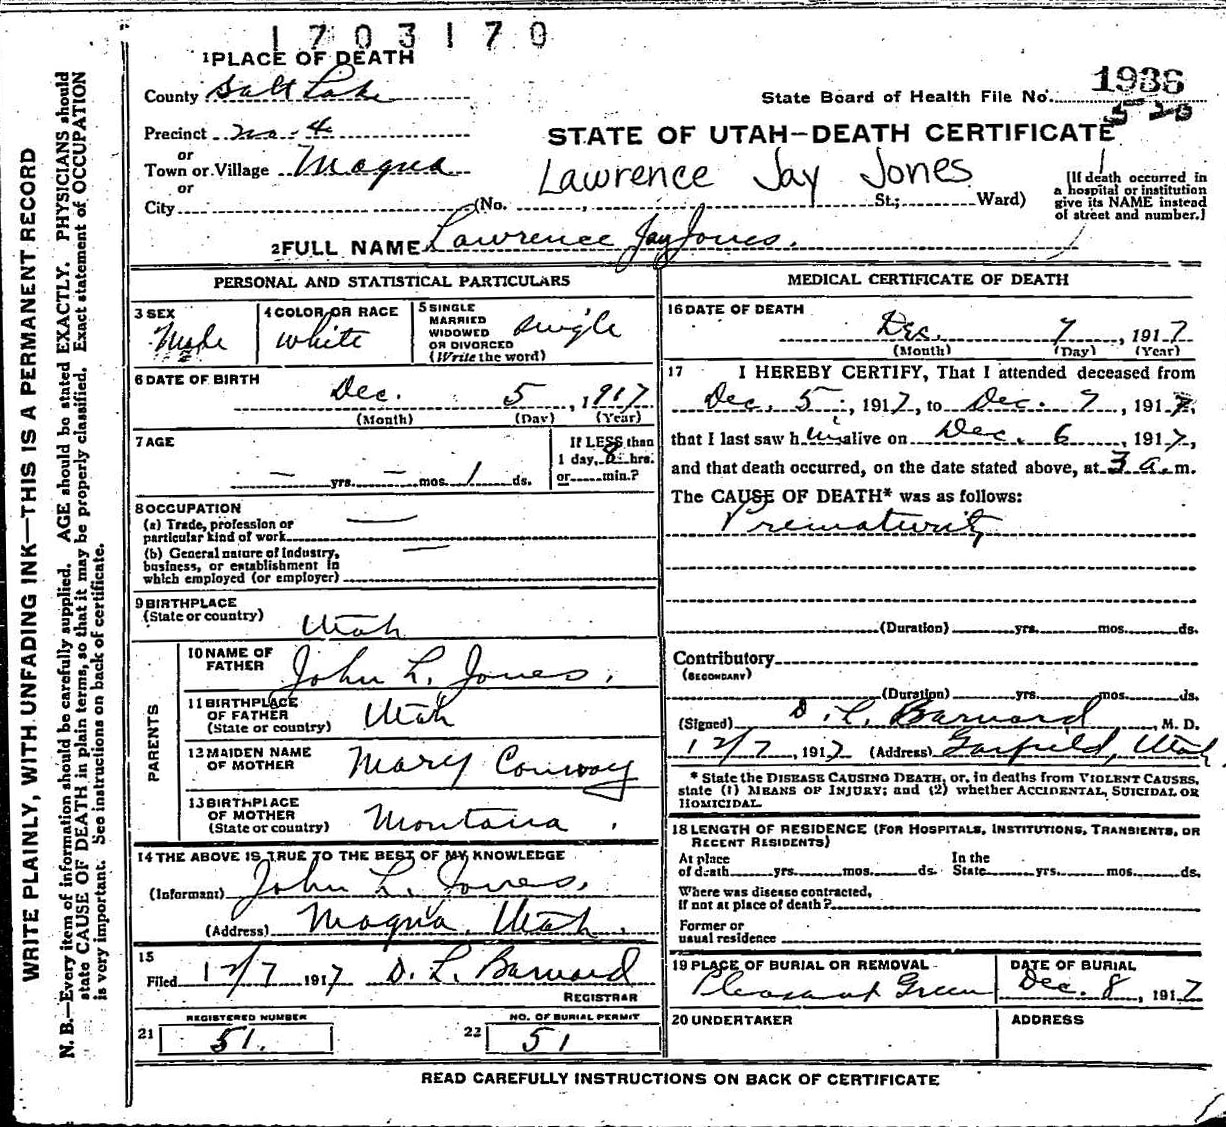 1703170
1 PLACE OF DEATH
County Salt Lake
State Board of Health File No. 1936
Precinct No. 4
STATE OF UTAH—DEATH CERTIFICATE
or
Town or Village Magna
Lawrence Jay Jones
or
City (No. , St.; Ward)
[If death occurred in
a hospital or institution
give its NAME instead
of street and number.]
2 FULL NAME Lawrence Jay Jones.
PERSONAL AND STATISTICAL PARTICULARS
3 SEX
Male
4 COLOR OR RACE
white
5 SINGLE
MARRIED
WIDOWED
OR DIVORCED
(Write the word)
single
6 DATE OF BIRTH
Dec. 5, 1917
(Month) (Day) (Year)
7 AGE
— yrs. — mos. 1 ds.
If LESS than
1 day, 8 hrs.
or min.?
8 OCCUPATION
(a) Trade, profession or
particular kind of work —
(b) General nature of Industry,
business, or establishment in
which employed (or employer) —
9 BIRTHPLACE
(State or country)
Utah
PARENTS
10 NAME OF
FATHER
John L. Jones.
11 BIRTHPLACE
OF FATHER
(State or country)
Utah
12 MAIDEN NAME
OF MOTHER
Mary Conway
13 BIRTHPLACE
OF MOTHER
(State or country)
Montana.
14 THE ABOVE IS TRUE TO THE BEST OF MY KNOWLEDGE
(Informant) John L. Jones.
(Address) Magna Utah.
15
Filed 12/7 1917 D. L. Barnard
REGISTRAR
REGISTERED NUMBER
21 51.
NO. OF BURIAL PERMIT
22 51
MEDICAL CERTIFICATE OF DEATH
16 DATE OF DEATH
Dec. 7, 1917
(Month) (Day) (Year)
17 I HEREBY CERTIFY, That I attended deceased from
Dec. 5, 1917, to Dec. 7, 1917,
that I last saw him alive on Dec. 6, 1917,
and that death occurred, on the date stated above, at 3 a.m.
The CAUSE OF DEATH* was as follows:
Prematurity
(Duration) yrs. mos. ds.
Contributory
(SECONDARY)
(Duration) yrs. mos. ds.
(Signed) D. L. Barnard, M. D.
12/7, 1917 (Address) Garfield, Utah.
* State the DISEASE CAUSING DEATH, or, in deaths from VIOLENT CAUSES,
state (1) MEANS OF INJURY; and (2) whether ACCIDENTAL, SUICIDAL OR
HOMICIDAL.
18 LENGTH OF RESIDENCE (FOR HOSPITALS, INSTITUTIONS, TRANSIENTS, OR
RECENT RESIDENTS)
At place
of death yrs. mos. ds.
In the
State yrs. mos. ds.
Where was disease contracted,
if not at place of death?
Former or
usual residence
19 PLACE OF BURIAL OR REMOVAL
Pleasant Green
DATE OF BURIAL
Dec. 8, 1917
20 UNDERTAKER
ADDRESS
READ CAREFULLY INSTRUCTIONS ON BACK OF CERTIFICATE
WRITE PLAINLY, WITH UNFADING INK—THIS IS A PERMANENT RECORD
N. B.—Every item of information should be carefully supplied. AGE should be stated EXACTLY. PHYSICIANS should
state CAUSE OF DEATH in plain terms, so that it may be properly classified. Exact statement of OCCUPATION
is very important. See instructions on back of certificate.